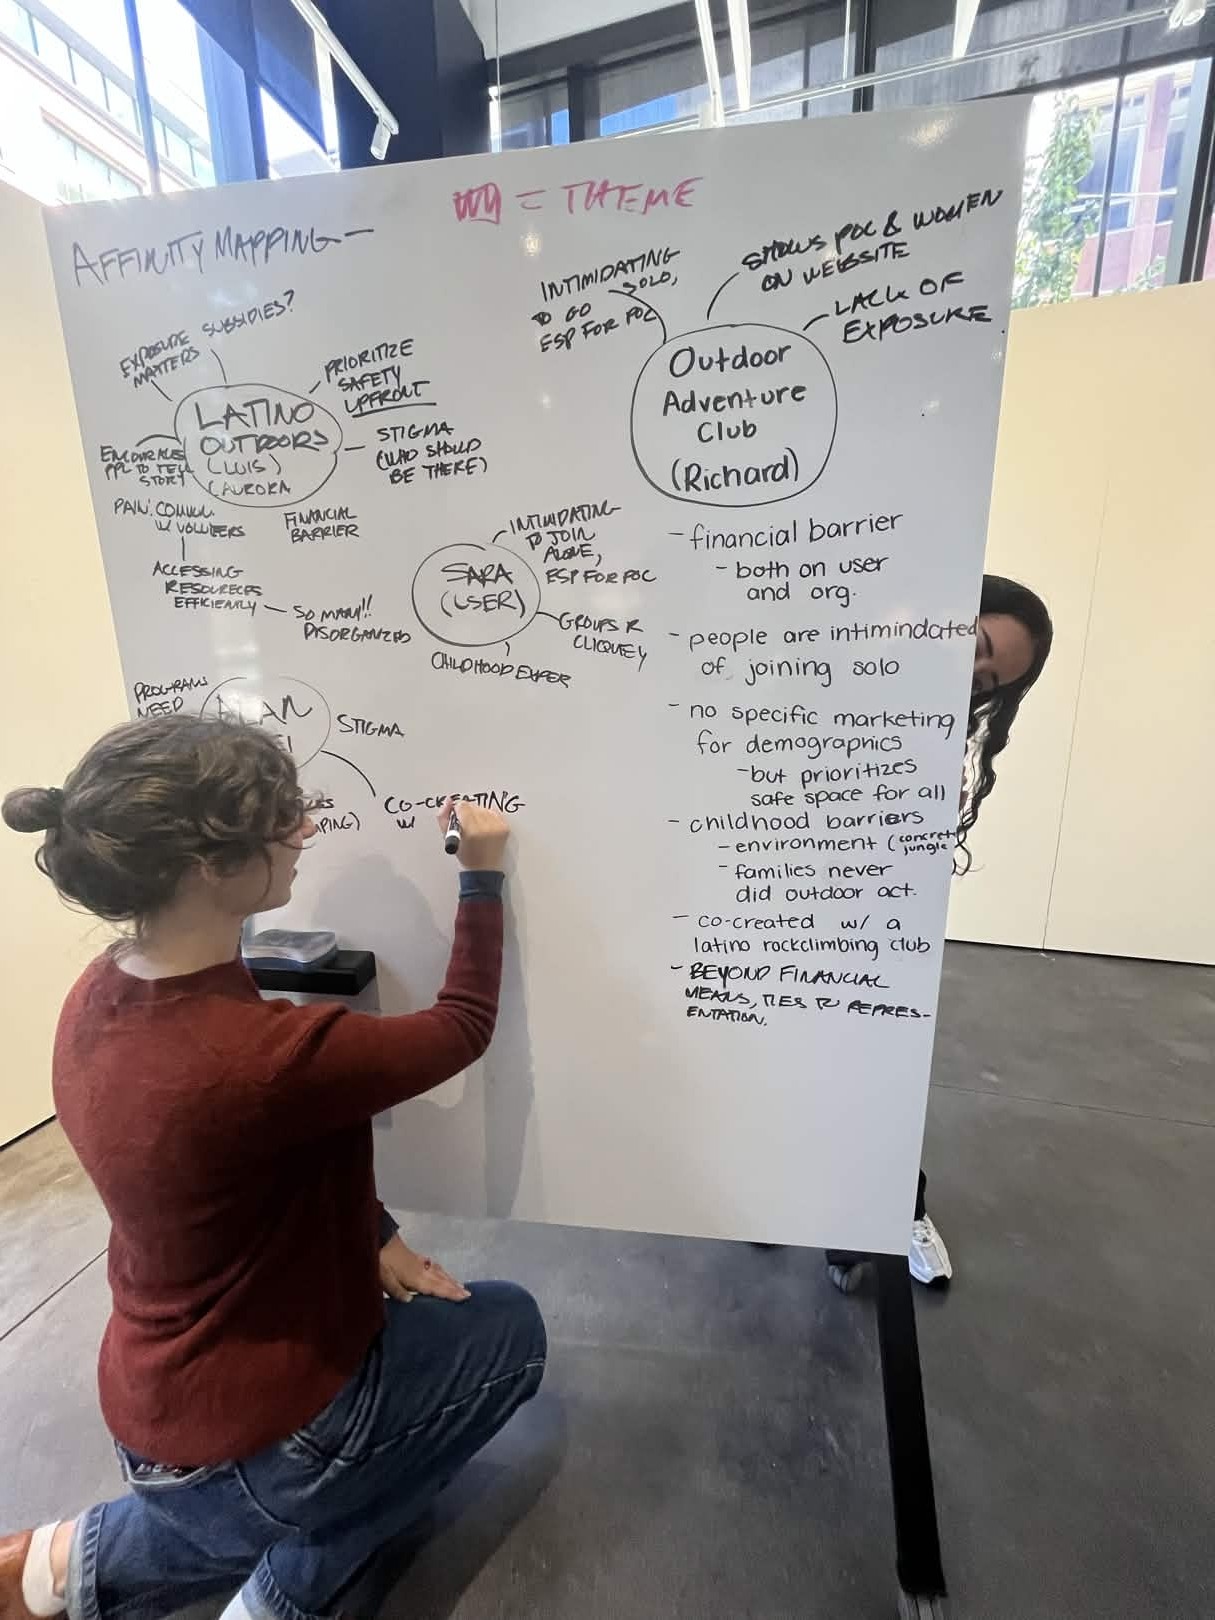 = THEME
AFFINITY MAPPING—
EXPOSURE
MATTERS
SUBSIDIES?
PRIORITIZE
SAFETY
UPFRONT
LATINO
OUTDOORS
(LUIS)
(AURORA
STIGMA
(WHO SHOULD
BE THERE)
ENCOURAGES
PPL TO TELL
STORY
PAIN: COMMU.
W/ VOLUTEERS
FINANCIAL
BARRIER
ACCESSING
RESOURECES
EFFICIENTLY
SO MANY!!
DISORGANIZED
INTIMIDATING
TO JOIN
ALONE,
ESP FOR POC
SARA
(USER)
GROUPS R
CLIQUEY
CHILDHOOD EXPER
PROGRAMS
NEED
STIGMA
CO-CREATING
W/
INTIMIDATING
TO GO SOLO,
ESP FOR POC
SHOWS POC & WOMEN
ON WEBSITE
LACK OF
EXPOSURE
Outdoor
Adventure
Club
(Richard)
- financial barrier
- both on user
and org.
- people are intimindated
of joining solo
- no specific marketing
for demographics
- but prioritizes
safe space for all
- childhood barriers
- environment (concrete
jungle
- families never
did outdoor act.
- co-created w/ a
latino rockclimbing club
- BEYOND FINANCIAL
MEANS, TIES TO REPRES-
ENTATION.